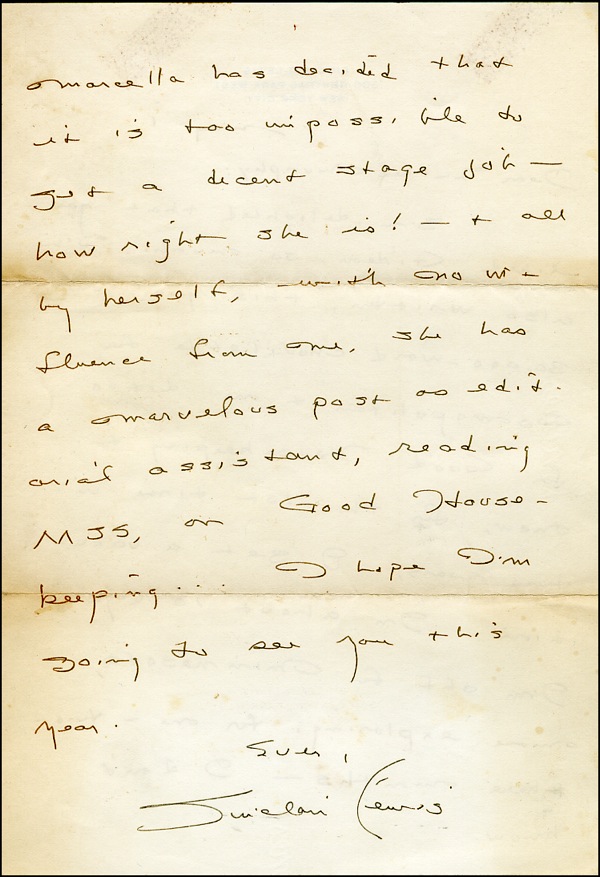 Marcella has decided that
it is too impossible to
get a decent stage job —
how right she is! — & all
by herself, with no in-
fluence from me, she has
a marvelous post as edit-
orial assistant, reading
MSS, on Good House-
keeping... I hope I'm
going to see you this
year.
Ever,
Sinclair Lewis